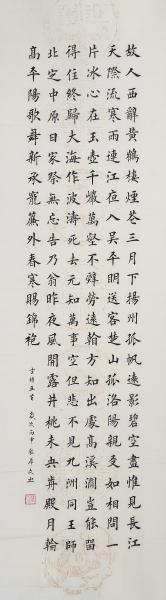 故人西辭黃鶴樓煙花三月下揚州孤帆遠影碧空盡惟見長江
天際流寒雨連江夜入吳平明送客楚山孤洛陽親友如相問一
片冰心在玉壺千巖萬壑不辭勞遠方知出處高溪澗豈能留
得住終歸大海作波濤死去元知萬事空但悲不見九洲同王師
北定中原日家祭無忘告乃翁昨夜風開露井桃未央前殿月輪
高平陽歌舞新承寵簾外春寒賜錦袍
古詩五首 歲次丙申